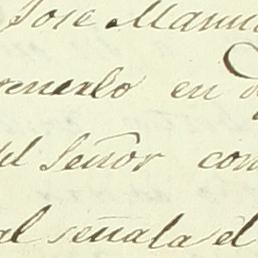 Jose Manu
ornerlo en d
el Señor con
al señala el